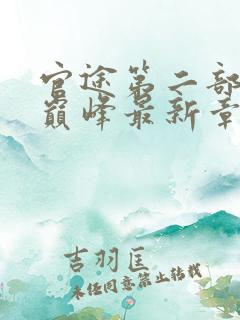 官途第二部
巅峰最新章
吉羽匡
未经同意禁止转载